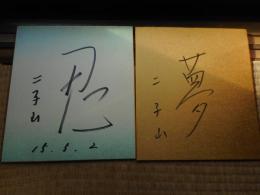 忍
二子山
15.5.2
夢
二子山